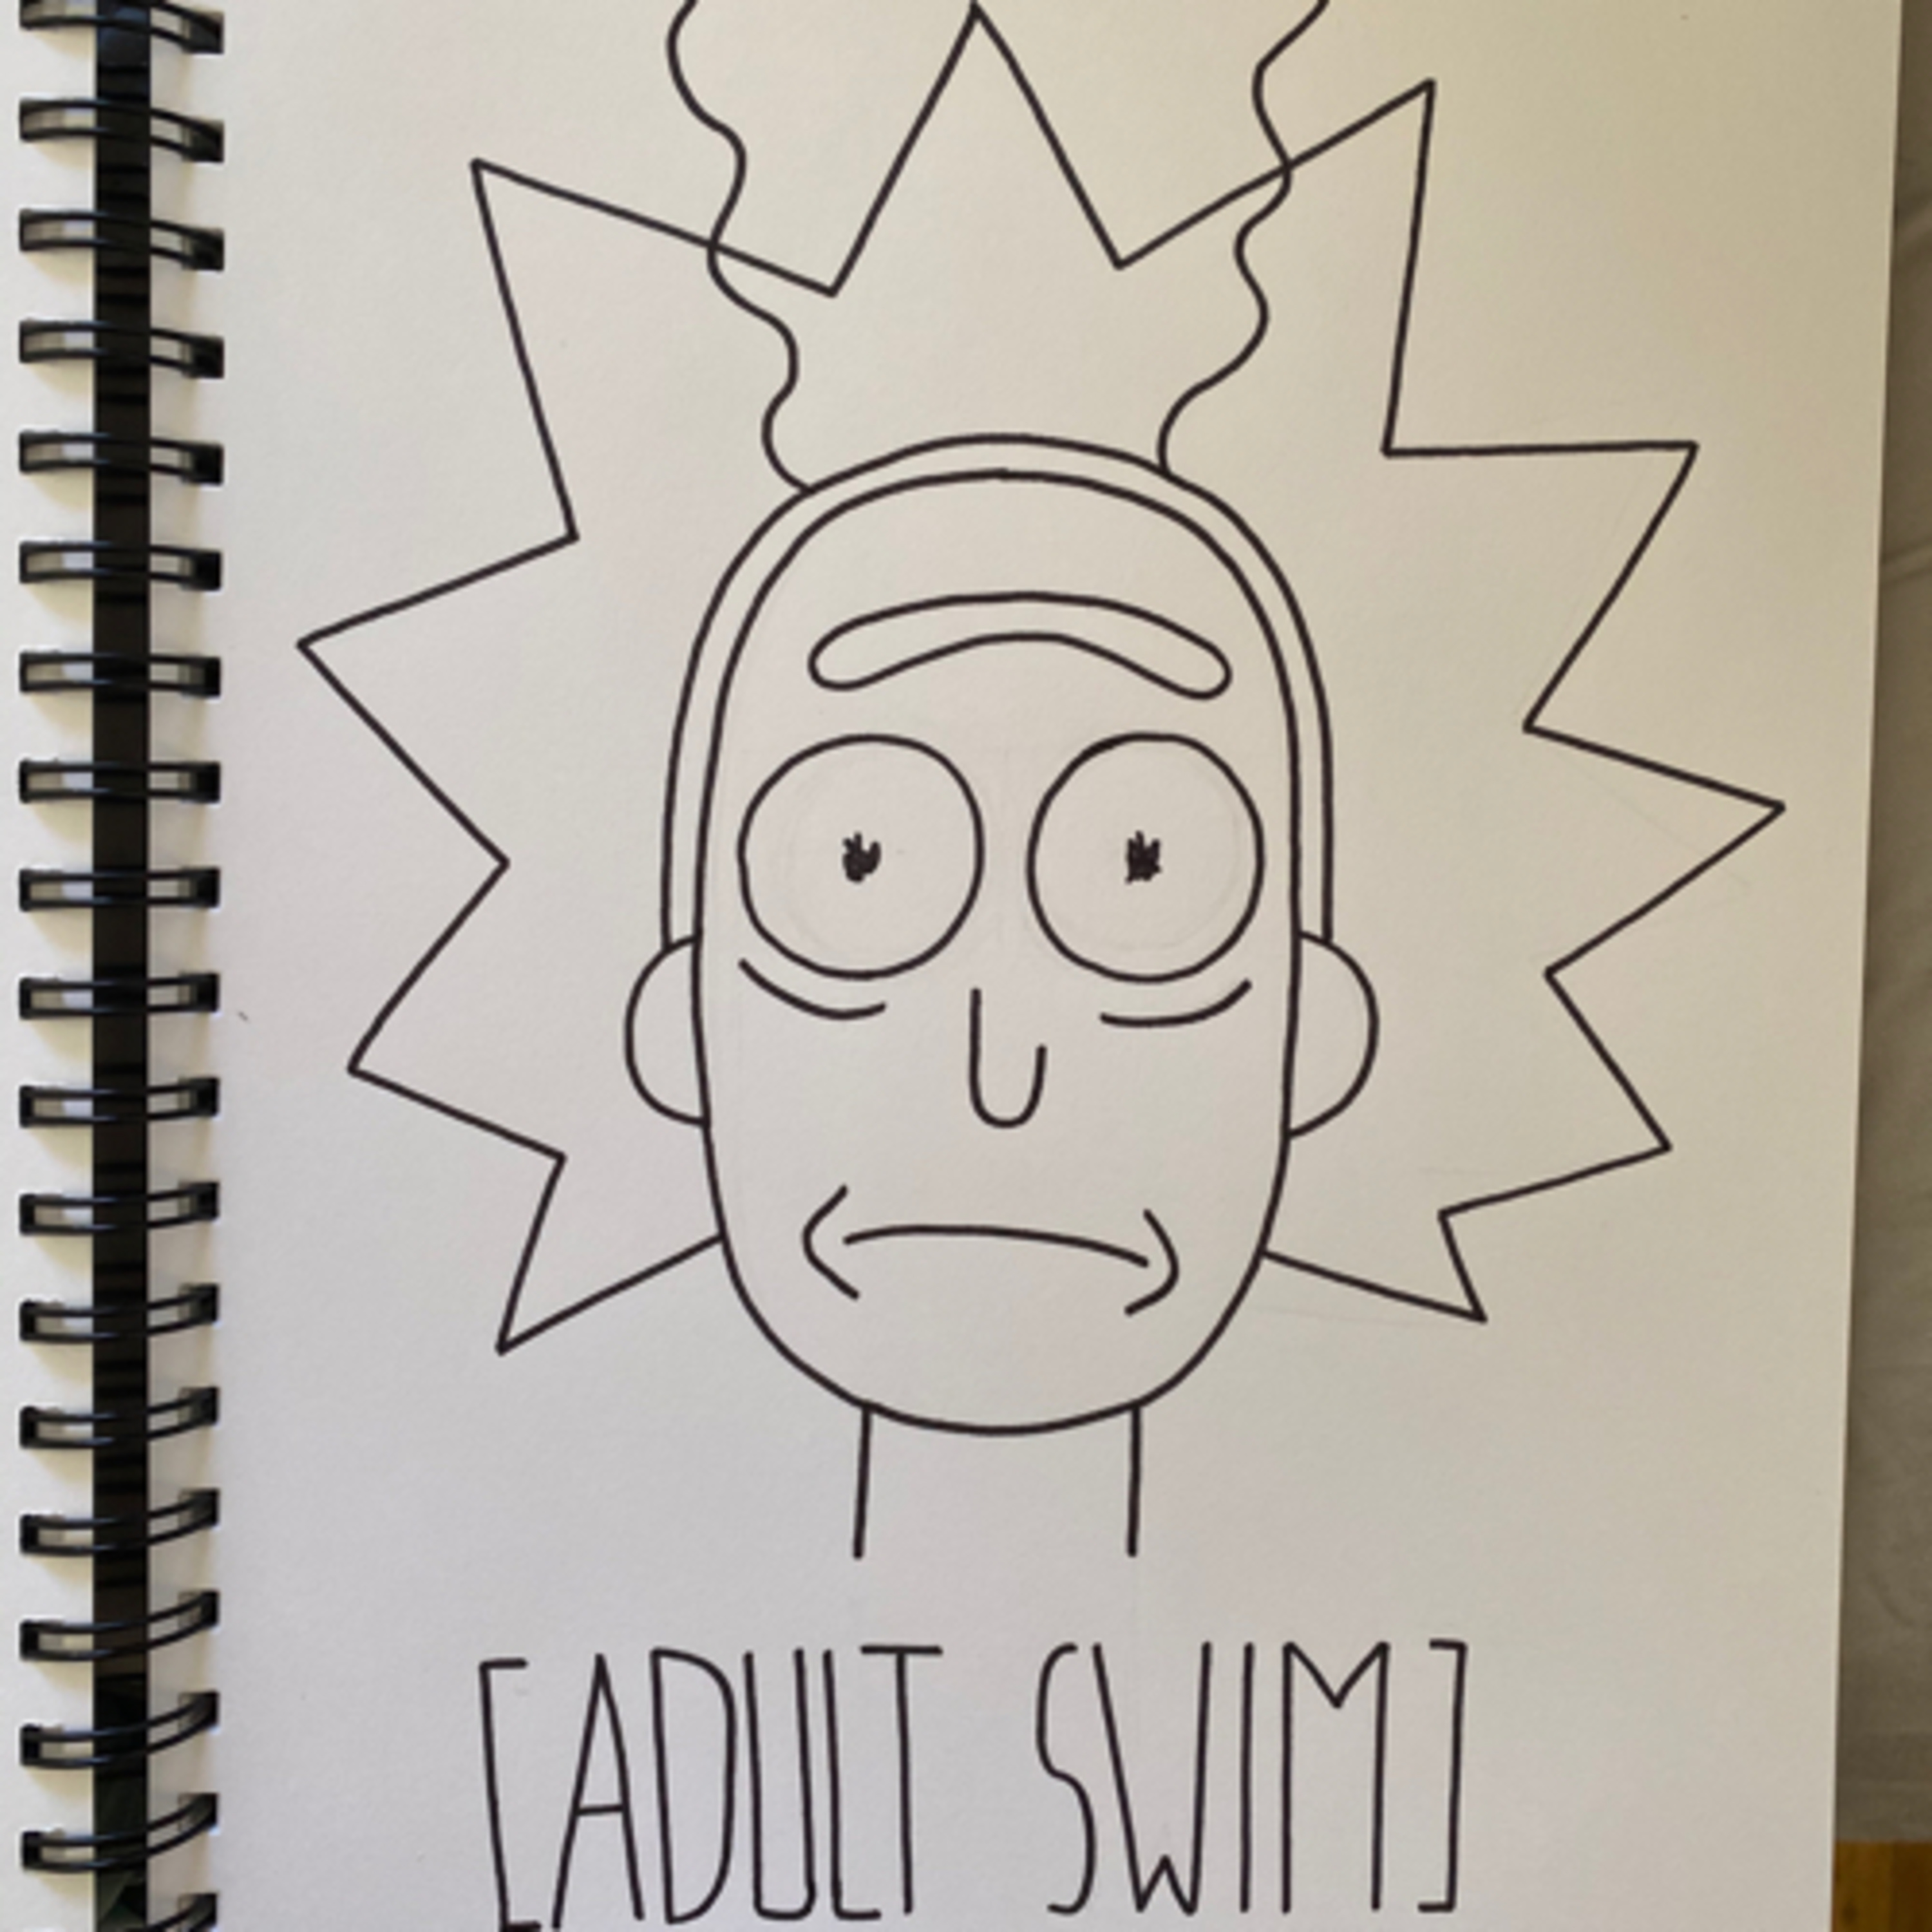 [ADULT SWIM]